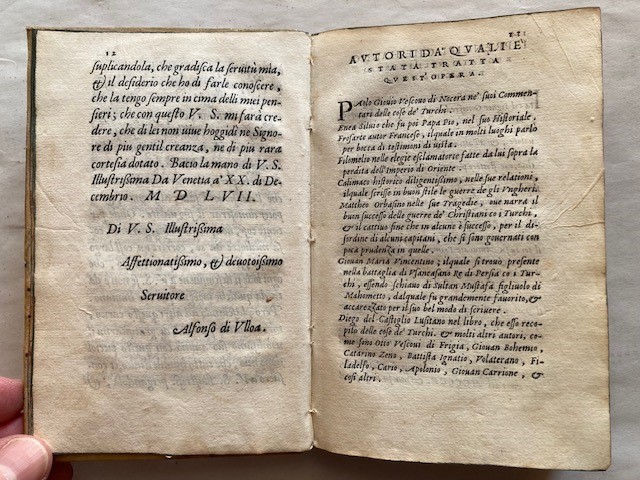 12
suplicandola, che gradisca la seruitù mia,
& il desiderio che ho di farle conoscere,
che la tengo sempre in cima delli miei pen-
sieri; che con questo V. S. mi farà cre-
dere, che di lei non uiue hoggidi ne Signo-
re di piu gentil creanza, ne di piu rara
cortesia dotato. Bacio la mano di V. S.
Illustrißima Da Venetia a' XX. di De-
cembrio. M D LVII.
Di V. S. Illustrißima
Affettionatißimo, & deuotoißimo
Seruitore
Alfonso di Vlloa.
AVTORI DA' QVALI E'
STATA TRATTA
QVEST' OPERA.
PAolo Giouio Vescouo di Nocera ne' suoi Commen-
tari delle cose de' Turchi.
Enea Siluio che fu poi Papa Pio, nel suo Historiale.
Frosarte autor Francese, ilquale in molti luoghi parlo
per bocca di testimoni di uista.
Filomelio nelle elegie esclamatorie fatte da lui sopra la
perdita dell'Imperio di Oriente.
Calimaco historico diligentissimo, nelle sue relationi,
ilquale scrisse in buon stile le guerre de gli Vngheri.
Mattheo Orbasino nelle sue Tragedie, oue narra il
buon successo delle guerre de' Christiani co i Turchi,
& il cattiuo fine che in alcune è successo, per il di-
sordine di alcuni capitani, che si sono gouernati con
poca prudenza in quelle.
Giouan Maria Vincentino; ilquale si trouo presente
nella battaglia di Vsancasano Re di Persia co i Tur-
chi, essendo schiauo di Sultan Mustafa figliuolo di
Mahometto, dalquale fu grandemente fauorito, &
accarezzato per il suo bel modo di scriuere.
Diego del Castiglio Lusitano nel libro, che esso reco-
pilo delle cose de' Turchi. & molti altri autori, co-
me sono Otto Vescoui di Frigia, Giouan Bohemio,
Catarino Zeno, Battista Ignatio, Volaterano, Fi-
ladelfo, Cario, Apolonio, Giouan Carrione, &
cosi altri.